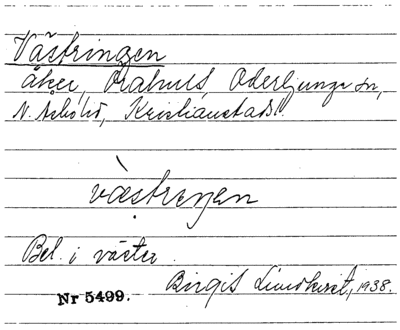 Västringen
åker, Drahus, Oderljunga sn,
N. Åsbo hd, Kristianstads l.
västreŋen
Bel. i väster.
Birgit Lindkvist, 1938.
Nr 5499.